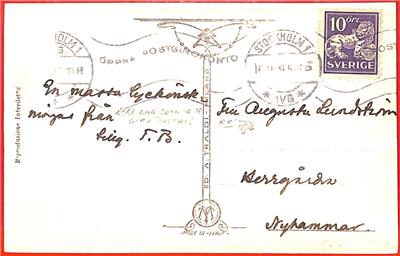 STOCKHOLM 1
ÖPPNA POSTGIROKONTO
STOCKHOLM 1
1VB
10 ÖRE
SVERIGE
Riproduzione Interdetta
ED. A. TRALDI - MILANO
En massa Lyckönsk-
ningar från
T. B.
Fru Augusta Lundström
Herrgården
Nyhammar.